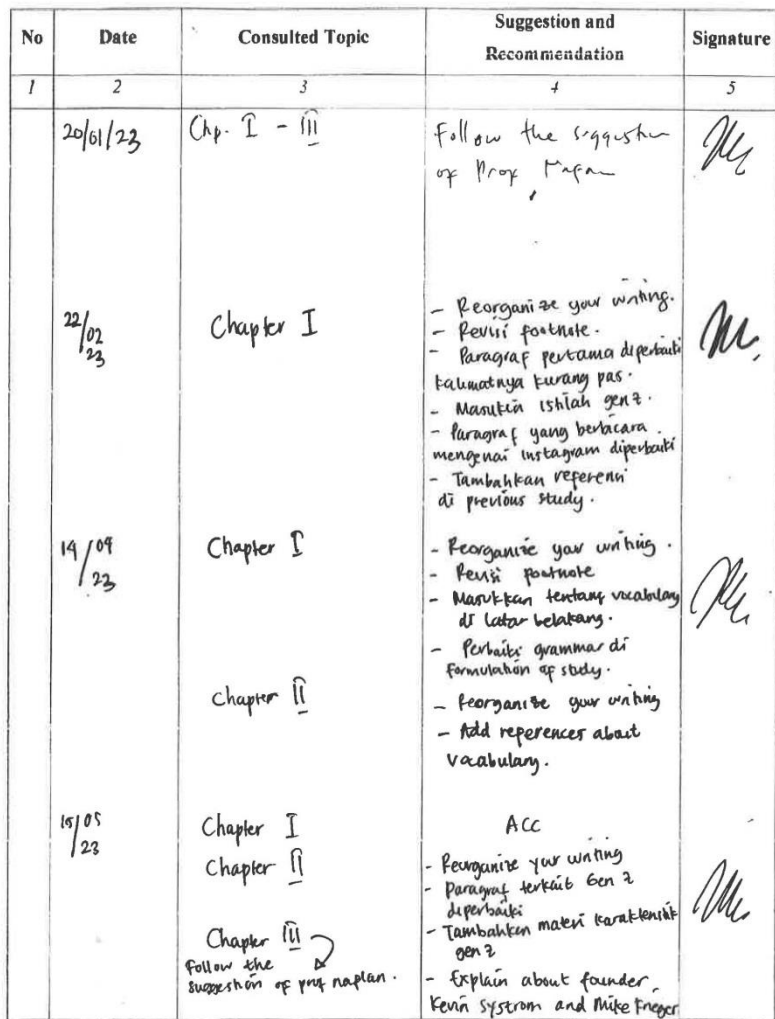 No Date Consulted Topic Suggestion and Recommendation Signature
1 2 3 4 5
20/01/23 Chp. I - III Follow the suggestion
of Prof
22/02/23 Chapter I - Reorganize your writing.
- Revisi footnote.
- Paragraf pertama diperbaiki
kalimatnya kurang pas.
- Masukin istilah gen z.
- Paragraf yang berbicara
mengenai instagram diperbaiki
- Tambahkan referensi
di previous study.
14/04/23 Chapter I - Reorganize your writing.
- Revisi footnote
- Masukkan tentang vocabulary
di latar belakang.
- Perbaiki grammar di
formulation of study.
Chapter II - Reorganize your writing
- Add references about
vocabulary.
15/05/23 Chapter I ACC
Chapter II - Reorganize your writing
- Paragraf terkait Gen Z
diperbaiki
- Tambahkan materi karakteristik
gen z
Chapter III
Follow the
suggestion of prof naplan.
- Explain about founder,
Kevin Systrom and Mike Krieger